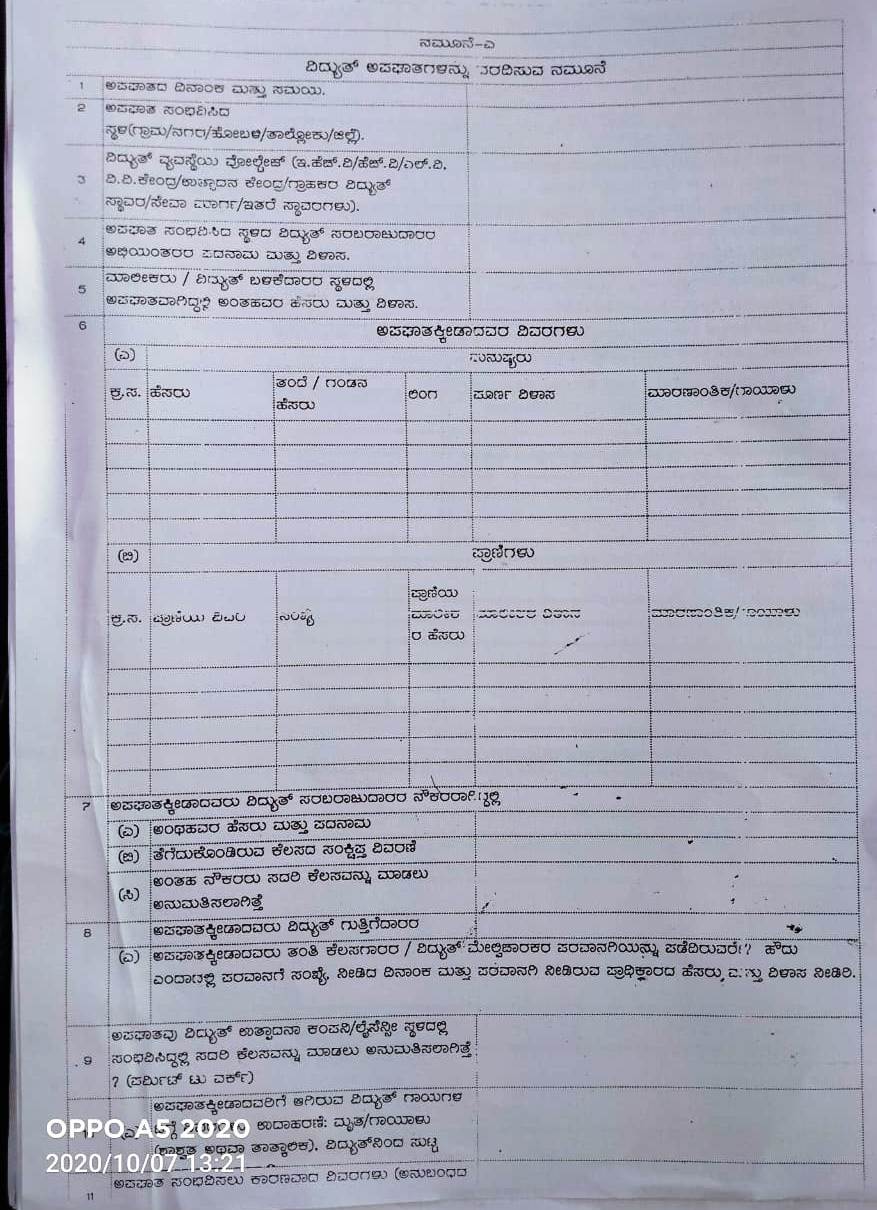 ನಮೂನೆ-ಎ
ವಿದ್ಯುತ್ ಅಪಘಾತಗಳನ್ನು ವರದಿಸುವ ನಮೂನೆ
1 ಅಪಘಾತದ ದಿನಾಂಕ ಮತ್ತು ಸಮಯ.
2 ಅಪಘಾತ ಸಂಭವಿಸಿದ
ಸ್ಥಳ(ಗ್ರಾಮ/ನಗರ/ಹೋಬಳಿ/ತಾಲ್ಲೋಕು/ಜಿಲ್ಲೆ).
ವಿದ್ಯುತ್ ವ್ಯವಸ್ಥೆಯ ವೋಲ್ಟೇಜ್ (ಇ.ಹೆಚ್.ವಿ/ಹೆಚ್.ವಿ/ಎಲ್.ವಿ,
3 ವಿ.ವಿ.ಕೇಂದ್ರ/ಉತ್ಪಾದನ ಕೇಂದ್ರ/ಗ್ರಾಹಕರ ವಿದ್ಯುತ್
ಸ್ಥಾವರ/ಸೇವಾ ಮಾರ್ಗ/ಇತರೆ ಸ್ಥಾವರಗಳು).
4 ಅಪಘಾತ ಸಂಭವಿಸಿದ ಸ್ಥಳದ ವಿದ್ಯುತ್ ಸರಬರಾಜುದಾರರ
ಅಭಿಯಂತರರ ಪದನಾಮ ಮತ್ತು ವಿಳಾಸ.
5 ಮಾಲೀಕರು / ವಿದ್ಯುತ್ ಬಳಕೆದಾರರ ಸ್ಥಳದಲ್ಲಿ
ಅಪಘಾತವಾಗಿದ್ದಲ್ಲಿ ಅಂತಹವರ ಹೆಸರು ಮತ್ತು ವಿಳಾಸ.
6 ಅಪಘಾತಕ್ಕೀಡಾದವರ ವಿವರಗಳು
(ಎ) ಮನುಷ್ಯರು
ಕ್ರ.ಸ. ಹೆಸರು ತಂದೆ / ಗಂಡನ ಹೆಸರು ಲಿಂಗ ಪೂರ್ಣ ವಿಳಾಸ ಮಾರಣಾಂತಿಕ/ಗಾಯಾಳು
(ಬಿ) ಪ್ರಾಣಿಗಳು
ಕ್ರ.ಸ. ಪ್ರಾಣಿಯ ವಿವರ ಸಂಖ್ಯೆ ಪ್ರಾಣಿಯ ಮಾಲೀಕರ ಹೆಸರು ಮಾಲೀಕರ ವಿಳಾಸ ಮಾರಣಾಂತಿಕ/ಗಾಯಾಳು
7 ಅಪಘಾತಕ್ಕೀಡಾದವರು ವಿದ್ಯುತ್ ಸರಬರಾಜುದಾರರ ನೌಕರರಾಗಿದ್ದಲ್ಲಿ
(ಎ) ಅಂಥಹವರ ಹೆಸರು ಮತ್ತು ಪದನಾಮ
(ಬಿ) ತೆಗೆದುಕೊಂಡಿರುವ ಕೆಲಸದ ಸಂಕ್ಷಿಪ್ತ ವಿವರಣೆ
(ಸಿ) ಅಂತಹ ನೌಕರರು ಸದರಿ ಕೆಲಸವನ್ನು ಮಾಡಲು
ಅನುಮತಿಸಲಾಗಿತ್ತೆ
8 ಅಪಘಾತಕ್ಕೀಡಾದವರು ವಿದ್ಯುತ್ ಗುತ್ತಿಗೆದಾರರ
(ಎ) ಅಪಘಾತಕ್ಕೀಡಾದವರು ತಂತಿ ಕೆಲಸಗಾರರ / ವಿದ್ಯುತ್ ಮೇಲ್ವಿಚಾರಕರ ಪರವಾನಗಿಯನ್ನು ಪಡೆದಿರುವರೇ? ಹೌದು
ಎಂದಾದಲ್ಲಿ ಪರವಾನಗೆ ಸಂಖ್ಯೆ, ನೀಡಿದ ದಿನಾಂಕ ಮತ್ತು ಪರವಾನಗಿ ನೀಡಿರುವ ಪ್ರಾಧಿಕಾರದ ಹೆಸರು ಮತ್ತು ವಿಳಾಸ ನೀಡಿರಿ.
ಅಪಘಾತವು ವಿದ್ಯುತ್ ಉತ್ಪಾದನಾ ಕಂಪನಿ/ಲೈಸೆನ್ಸೀ ಸ್ಥಳದಲ್ಲಿ
9 ಸಂಭವಿಸಿದ್ದಲ್ಲಿ ಸದರಿ ಕೆಲಸವನ್ನು ಮಾಡಲು ಅನುಮತಿಸಲಾಗಿತ್ತೆ
? (ಪರ್ಮಿಟ್ ಟು ವರ್ಕ್)
ಅಪಘಾತಕ್ಕೀಡಾದವರಿಗೆ ಆಗಿರುವ ವಿದ್ಯುತ್ ಗಾಯಗಳ
(ಎ) ಬಗ್ಗೆ ವಿವರಗಳು ಉದಾಹರಣೆ: ಮೃತ/ಗಾಯಾಳು
(ಶಾಶ್ವತ ಅಥವಾ ತಾತ್ಕಾಲಿಕ). ವಿದ್ಯುತ್‌ನಿಂದ ಸುಟ್ಟ
11 ಅಪಘಾತ ಸಂಭವಿಸಲು ಕಾರಣವಾದ ವಿವರಗಳು (ಅನುಬಂಧದ
OPPO A5 2020
2020/10/07 13:21